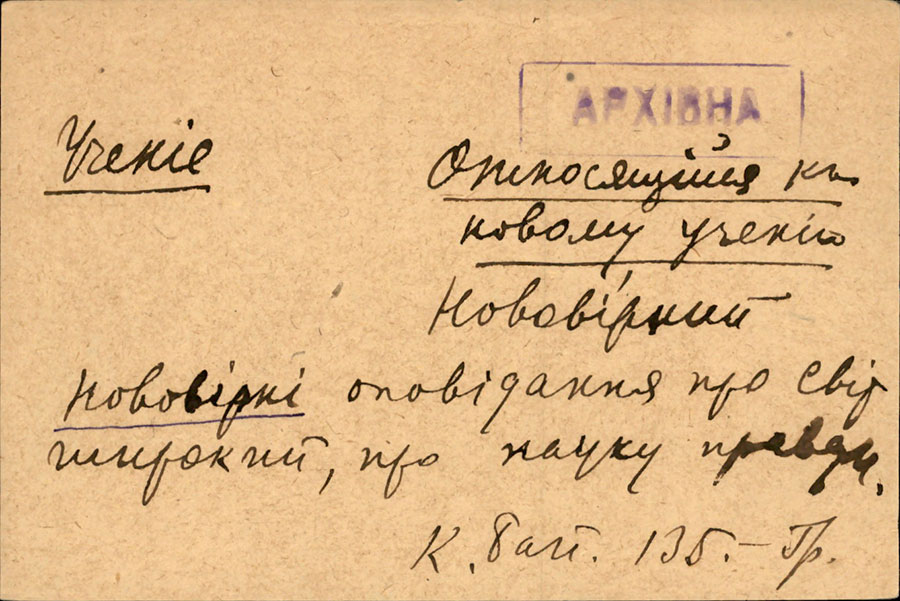 АРХІВНА
Ученіе
Относящійся къ
новому ученію
Нововірний
Нововірні оповідання про світ
широкий, про науку правди.
К. Бай. 135. – Гр.